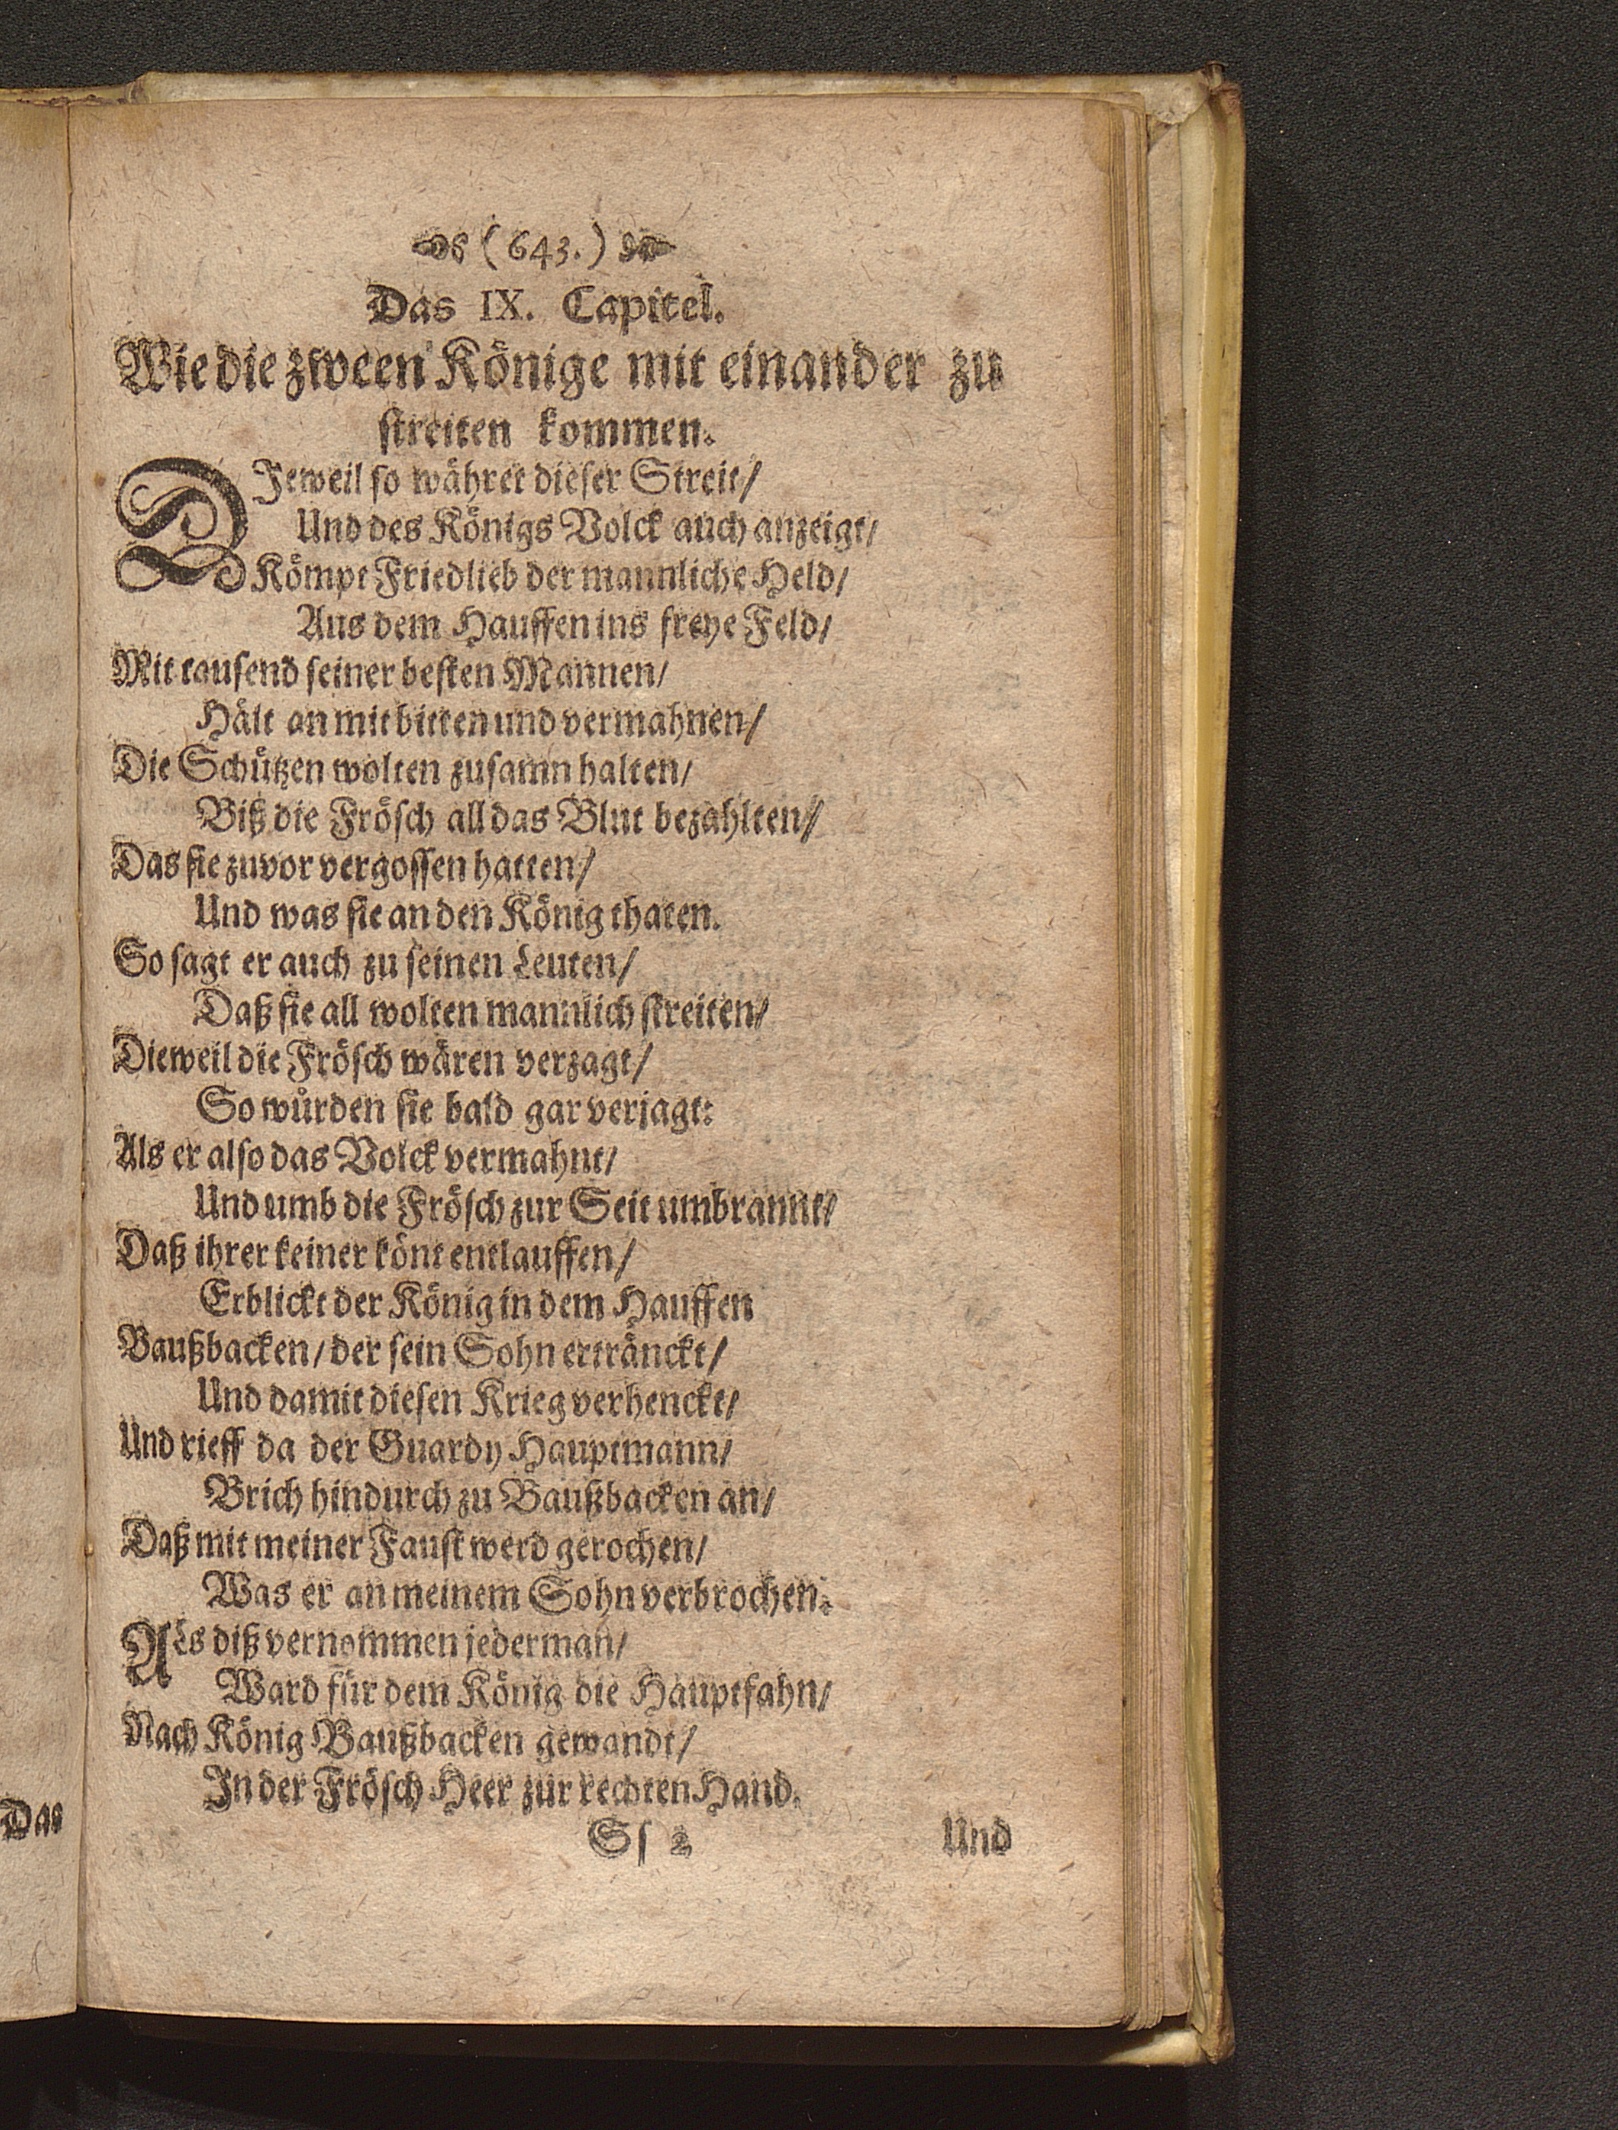 (643.)
Das IX. Capitel.
Wie die zween Könige mit einander zu
streiten kommen.
DJeweil so währet dieser Streit/
Und des Königs Volck auch anzeigt/
Kömpt Friedlieb der mannliche Held/
Aus dem Hauffen ins freye Feld/
Mit tausend seiner besten Mannen/
Hält an mit bitten und vermahnen/
Die Schützen wolten zusamn halten/
Biß die Frösch all das Blut bezahlten/
Das sie zuvor vergossen hatten/
Und was sie an den König thaten.
So sagt er auch zu seinen Leuten/
Daß sie all wolten mannlich streiten/
Dieweil die Frösch wären verzagt/
So würden sie bald gar verjagt:
Als er also das Volck vermahnt/
Und umb die Frösch zur Seit umbrannt/
Daß ihrer keiner könt entlauffen/
Erblickt der König in dem Hauffen
Baußbacken/ der sein Sohn ertränckt/
Und damit diesen Krieg verhenckt/
Und rieff da der Guardy Hauptmann/
Brich hindurch zu Baußbacken an/
Daß mit meiner Faust werd gerochen/
Was er an meinem Sohn verbrochen.
Als diß vernommen jederman/
Ward für dem König die Hauptfahn/
Nach König Baußbacken gewandt/
Jn der Frösch Heer zur rechten Hand.
Das
Ss 2 Und